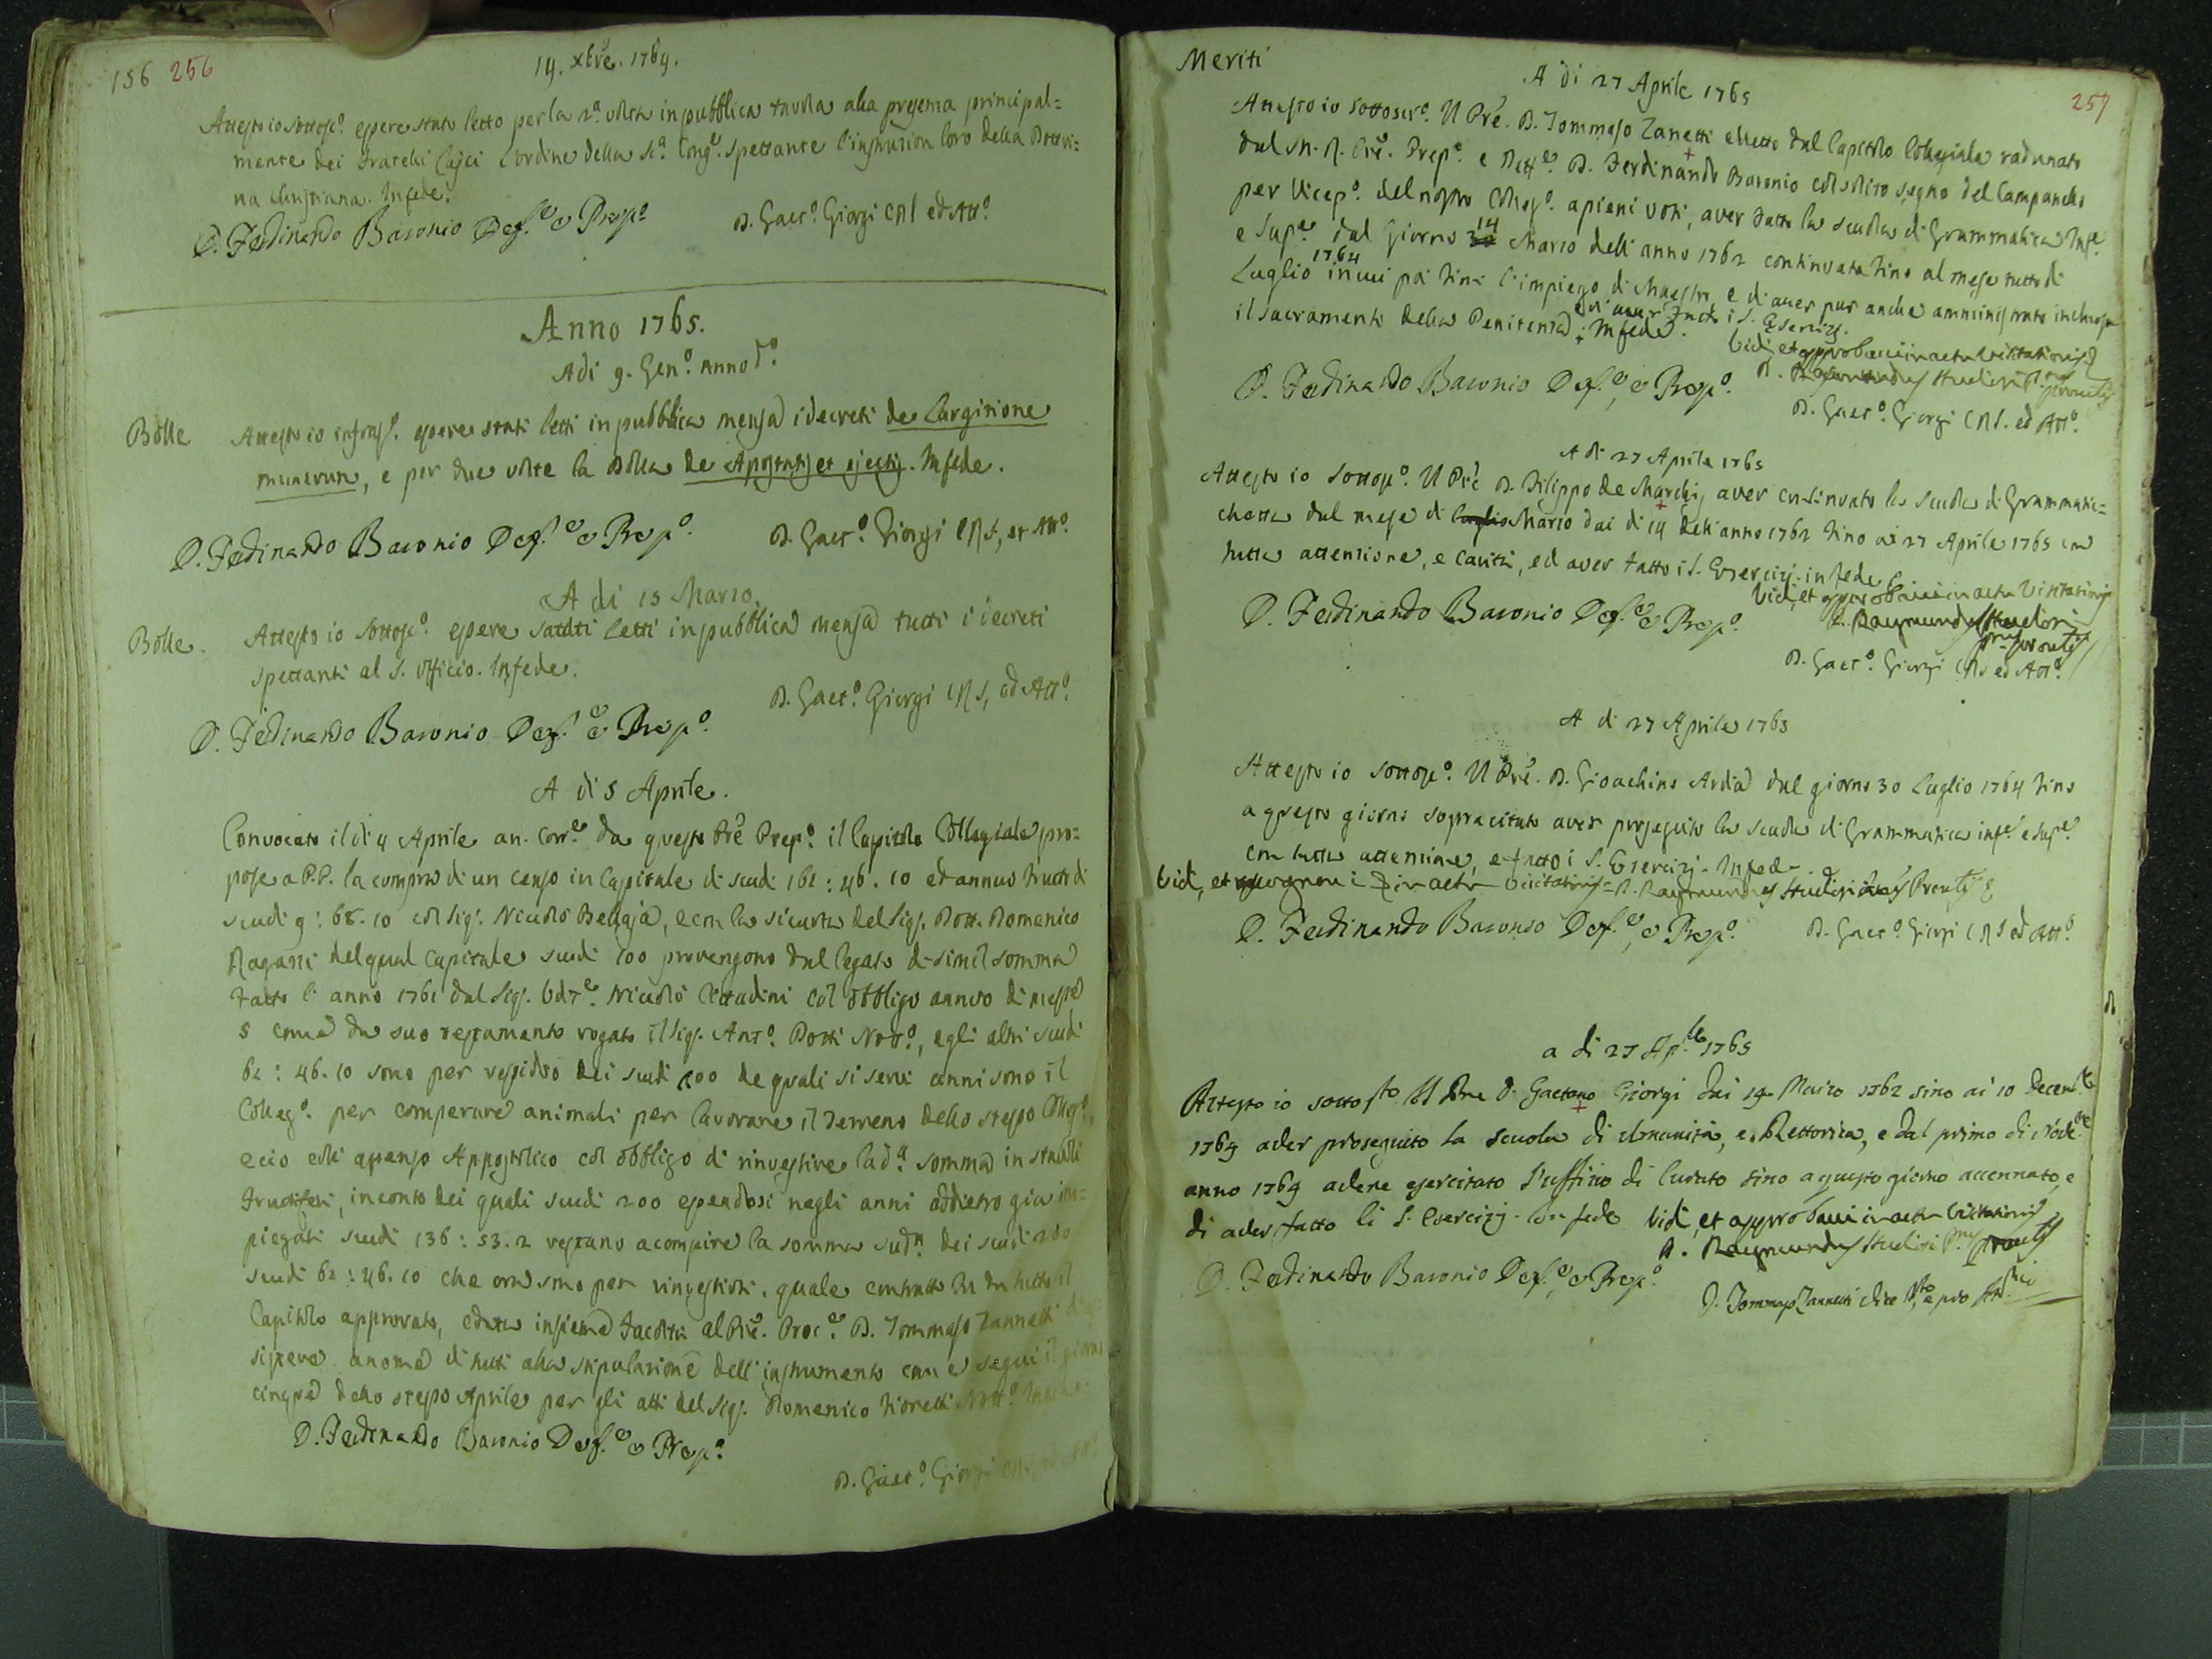 156 256
14. xbre. 1764.
Attesto io sottosco. essere stato letto per la 2a volta in pubblica tavola alla presenza principal=
mente dei Fratelli Laici l'ordine della Sa. Conge. spettante l'instruzion loro della Dottri=
na Christiana. In fede.
D. Ferdinando Baronio Defe. e Prepo.
D. Gaeto. Giorgi CRS ed Atto.
Anno 1765.
Adi 9. Geno. anno do.
Bolle
Attesto io infraso. essere stati letti in pubblica mensa i decreti de largitione
munerum, e per due volte la Bolla de Apostatis et ejectis. In fede.
D. Ferdinando Baronio Defe. e Prepo.
D. Gaeto. Giorgi CRS, et Atto.
A di 15 Marzo.
Bolle.
Attesto io sottosco. essere statti letti in pubblica mensa tutti i decreti
spettanti al S. Officio. In fede.
D. Gaeto. Giorgi CRS, ed Atto.
D. Ferdinando Baronio Defe. e Prepo.
A di 5 Aprile.
Convocato il di 4 Aprile an. corre. da questo Pre Prepo. il Capitolo Collegiale pro=
pose a P.P. la compra di un censo in Capitale di scudi 162: 46. 10 ed annuo frutto di
scudi 9: 68. 10 col Sigr. Niccolò , e con la sicurtà del Sigr. Dott. Domenico
Ragazzi del qual capitale scudi 100 provengono dal legato di simil somma
fatto l'anno 1761 dal Sigr. Niccolò Cittadini col obbligo annuo di messe
5 come da suo testamento rogato il Sigr. Anto. Notto., e gli altri scudi
62: 46. 10 sono per residuo dei scudi 200 de quali si servì anni sono il
Collego. per comperare animali per lavorare il terreno dello stesso Collego.,
e ciò coll' assenso Appostolico col obbligo di rinvestire la da. somma in stabili
fruttiferi, in conto dei quali scudi 200 essendosi negli anni addietro già im=
piegati scudi 136: 53. 2 restano a compire la somma suda. dei scudi 200
scudi 62: 46. 10 che ora sono per rinvestirsi, quale contratto fu da tutto il
Capitolo approvato, e data insieme facoltà al Pre. Proce. D. Tommaso Zannetti di
a nome di tutti alla stipulazione dell' instrumento come seguì il giorno
cinque dello stesso Aprile per gli atti del Sigr. Domenico Fioretti Notto. In fede.
D. Ferdinando Baronio Defe. e Prepo.
D. Gaeto. Giorgi CRS, ed Atto.
Meriti
257
A di 27 Aprile 1765
Attesto io sottoscro. Il Pre. D. Tommaso Zanetti eletto dal Capitolo Collegiale radunato
dal M. R. Pre. Prepo. e Defe. D. Ferdinando Baronio col solito segno del Campanello
per Vicepo. del nostro Collego. a pieni voti, aver fatto la scuola di Grammatica Infe.
e Supe. dal giorno 14 Marzo dell' anno 1762 continuata fino al mese tutto di
Luglio 1764 in cui poi finì l'impiego di Maestro, e di aver pur anche amministrato in chiesa
il sacramento della Penitenza, e di aver fatto i S. Esercizj. In fede.
Vidi, et approbavi in actu Visitationis
D. Raymundus Studiosi Prus Provlis
D. Ferdinando Baronio Defe., e Prepo.
D. Gaeto. Giorgi CRS. ed Atto.
A di 27 Aprile 1765
Attesto io sottosco. Il Pre D. Filippo de Marchis aver continuato la scuola di Grammati=
chetta dal mese di Marzo dai di 14 dell' anno 1762 fino ai 27 Aprile 1765 con
tutta attenzione, e carità, ed aver fatto i S. Esercizj. in fede
Vidi, et approbavi in actu Visitationis
D. Raymundus Studiosi
Prus Provlis
D. Ferdinando Baronio Defe. e Prepo.
D. Gaeto. Giorgi CRS ed Atto.
A di 27 Aprile 1765
Attesto io sottosco. Il Pre. D. Gioachino Ardia dal giorno 30 Luglio 1764 fino
a questo giorno sopracitato aver proseguito la scuola di Grammatica infe. e supe.
con tutta attenzione, e fatto i S. Esercizj. In fede.
Vidi, et in actu Visitationis D. Raymundus Studiosi Prus Provlis
D. Ferdinando Baronio Defe., e Prepo.
D. Gaeto. Giorgi CRS ed Atto.
a di 27 Aple. 1765
Attesto io sottosto. Il Pre D. Gaetano Giorgi dai 14 Marzo 1762 sino ai 10 Decembe.
1764 aver proseguito la scuola di Umanità, e Rettorica, e dal primo di Nove.
anno 1764 avere esercitato l'uffizio di Curato sino a questo giorno accennato, e
di aver fatto li S. Esercizj. In fede
Vidi, et approbavi in actu Visitationis
D. Raymundus Studiosi Prus Provlis
D. Ferdinando Baronio Defe., e Prepo.
D. Tommaso Zannetti Vice Rto. e pro Attrio